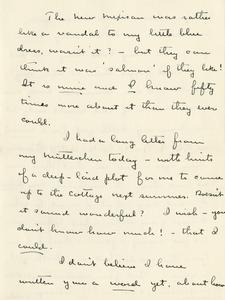 The New Mexican was rather
like a vandal to my little blue
dress, wasn't it? – but they can
think it was 'salmon' if they like!
It is mine and I know fifty
times more about it than they ever
could.
I had a long letter from
my Mütterchen today – with hints
of a deep-laid plot for me to come
up to the cottage next summer. Doesn't
it sound wonderful? I wish – you
don't know how much! – that I
could.
I don't believe I have
written you a word yet, about how